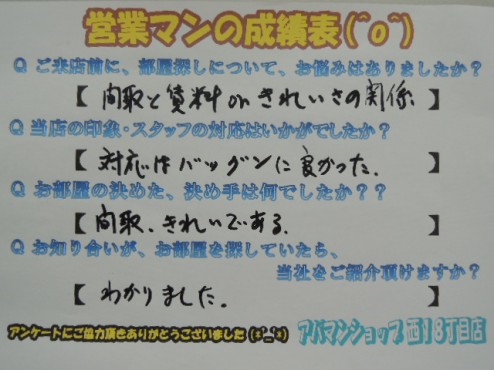 営業マンの成績表(^o^)
Q ご来店前に、部屋探しについて、お悩みはありましたか？
【 間取と賃料 on きれいさの関係 】
Q 当店の印象・スタッフの対応はいかがでしたか？
【 対応はバツグンに良かった. 】
Q お部屋の決めた、決め手は何でしたか？？
【 間取. きれいである. 】
Q お知り合いが、お部屋を探していたら、
当社をご紹介頂けますか？
【 わかりました. 】
アンケートにご協力頂きありがとうございました
アパマンショップ 西18丁目店